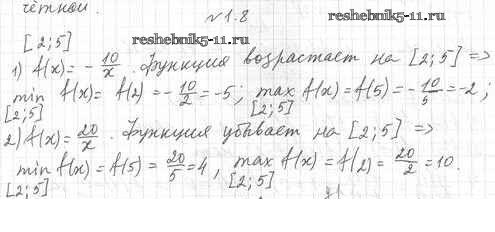 чётной.
№1.8
reshebnik5-11.ru
[2;5]
reshebnik5-11.ru
1) f(x) = - 10/x. Функция возрастает на [2;5] =>
min f(x) = f(2) = - 10/2 = -5; max f(x) = f(5) = - 10/5 = -2;
[2;5] [2;5]
2) f(x) = 20/x. Функция убывает на [2;5] =>
min f(x) = f(5) = 20/5 = 4, max f(x) = f(2) = 20/2 = 10.
[2;5] [2;5]